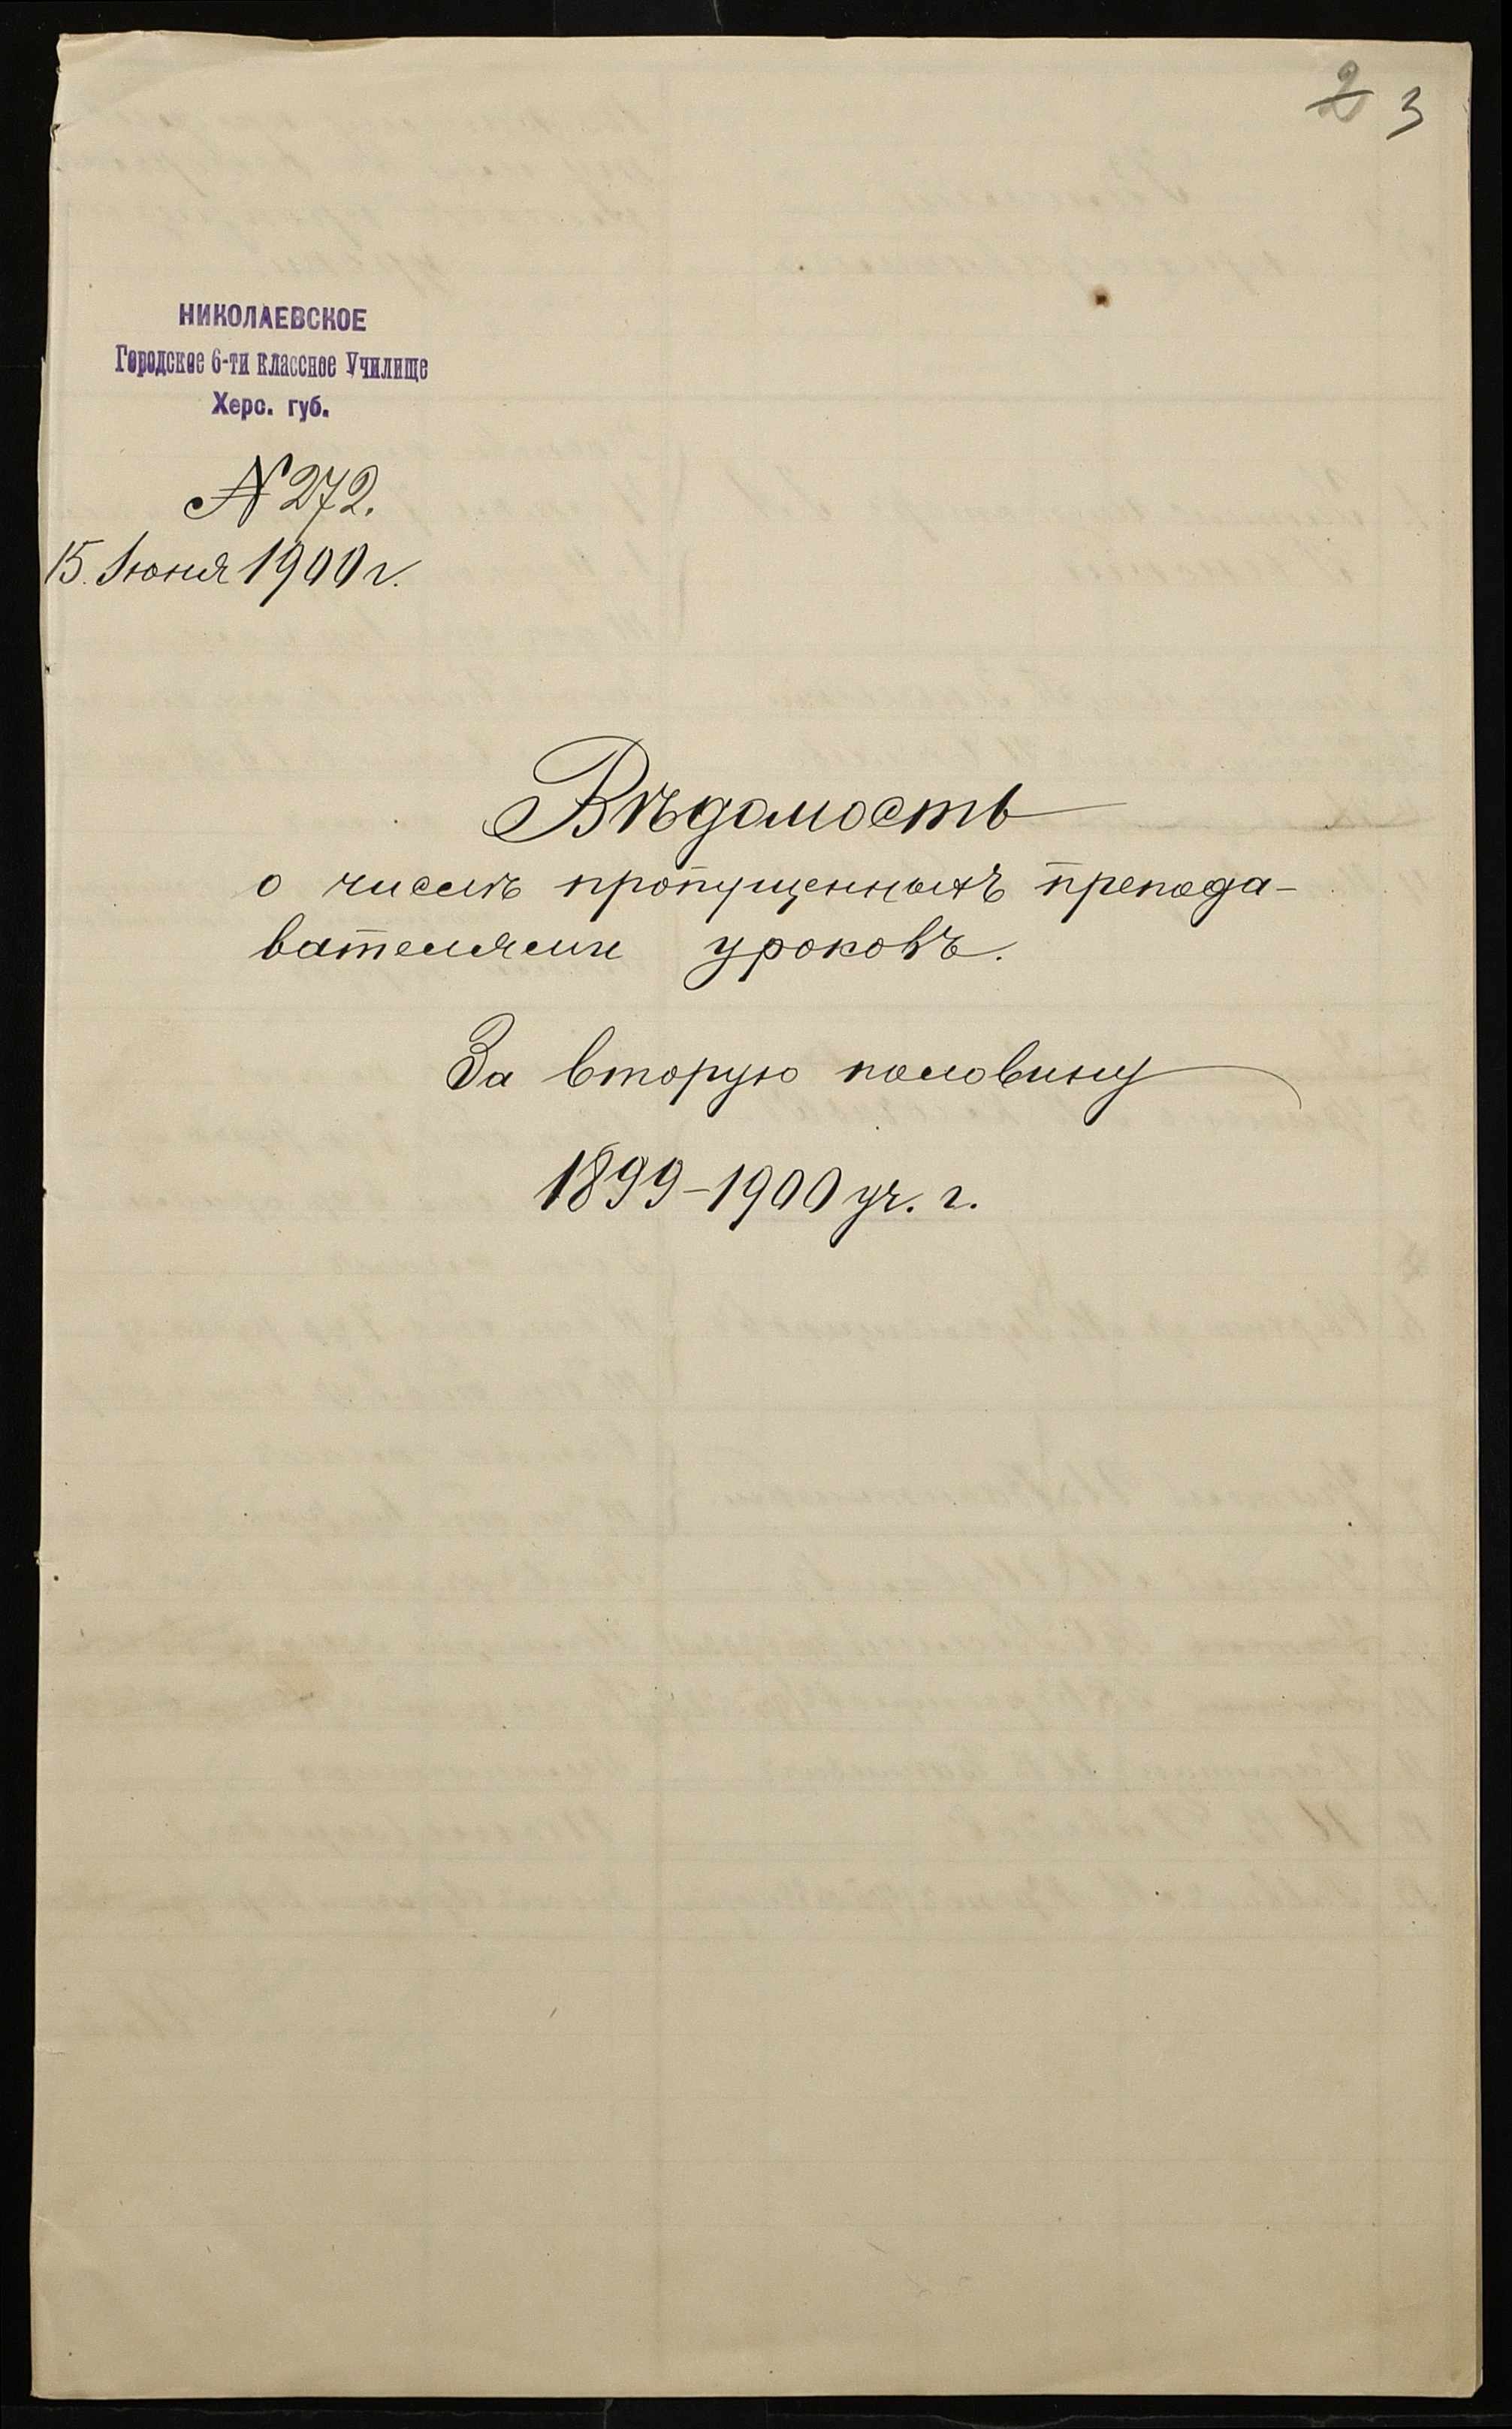 2 3
НИКОЛАЕВСКОЕ
Городское 6-ти классное Училище
Херс. губ.
№ 272.
15. Іюня 1900 г.
Вѣдомость
о числѣ пропущенныхъ препода-
вателями уроковъ.
За вторую половину
1899-1900 уч. г.